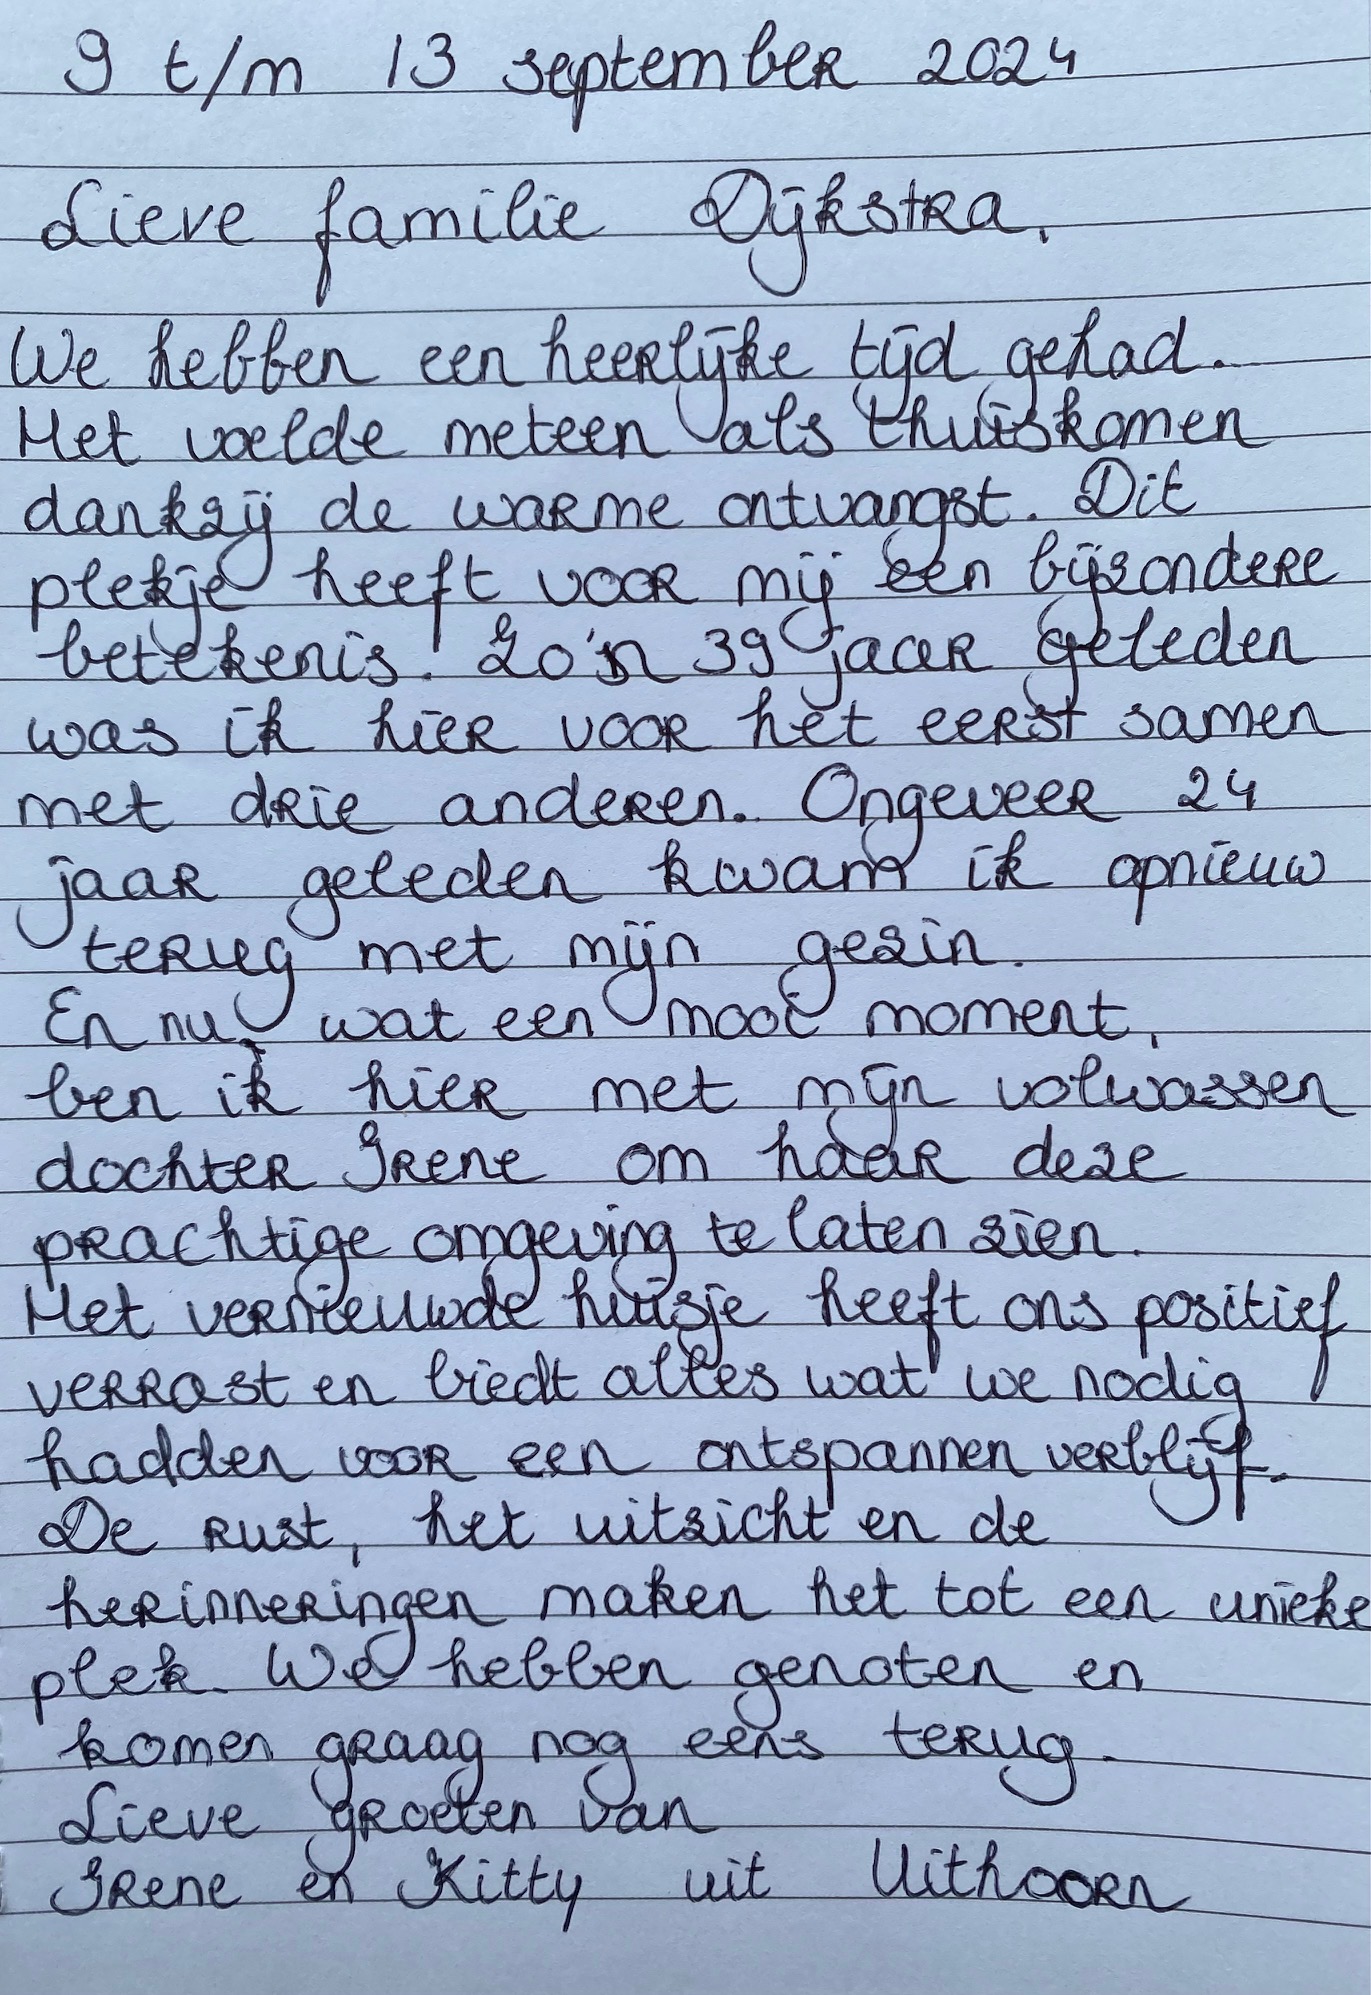 9 t/m 13 september 2024
Lieve familie Dijkstra,
We hebben een heerlijke tijd gehad.
Het voelde meteen als thuiskomen
dankzij de warme ontvangst. Dit
plekje heeft voor mij een bijzondere
betekenis. Zo'n 39 jaar geleden
was ik hier voor het eerst samen
met drie anderen. Ongeveer 24
jaar geleden kwam ik opnieuw
terug met mijn gezin.
En nu, wat een mooi moment,
ben ik hier met mijn volwassen
dochter Irene om haar deze
prachtige omgeving te laten zien.
Het vernieuwde huisje heeft ons positief
verrast en biedt alles wat we nodig
hadden voor een ontspannen verblijf.
De rust, het uitzicht en de
herinneringen maken het tot een unieke
plek. We hebben genoten en
komen graag nog eens terug.
Lieve groeten van
Irene en Kitty uit Uithoorn